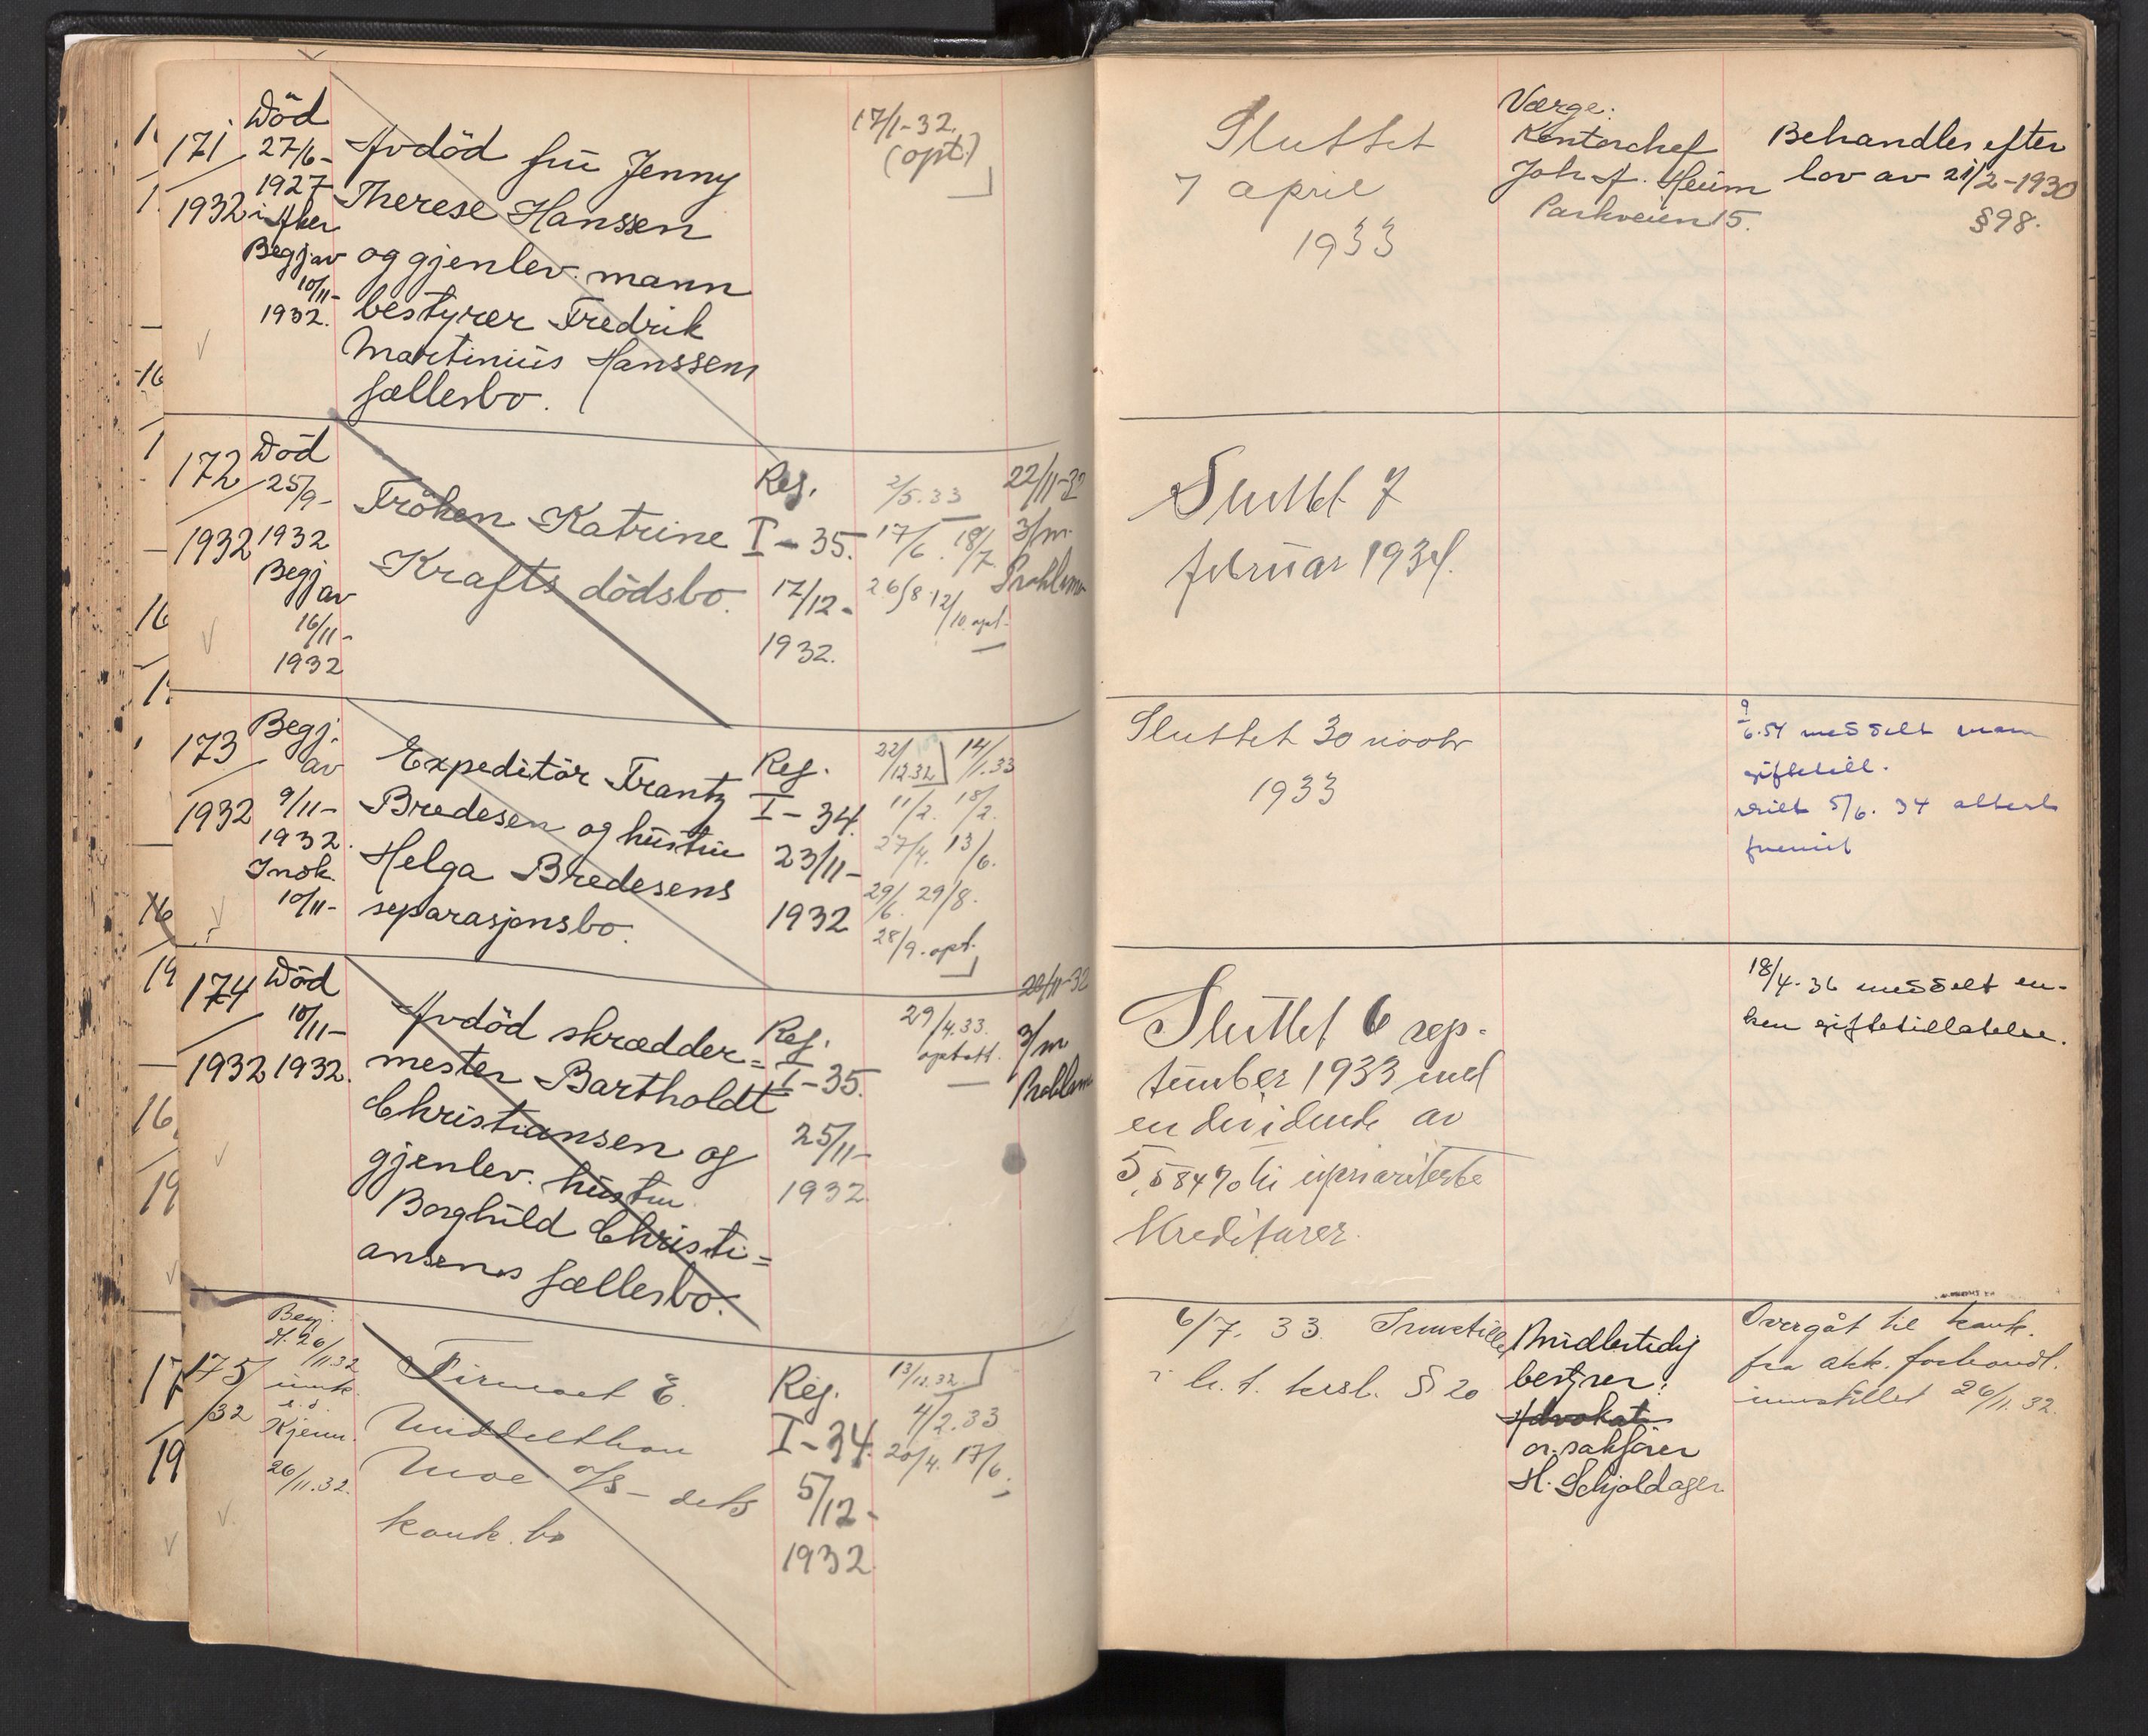 171
1932
Död
27/6-
1927
i Aker
Begj av
10/11-
1932.
Avdöd fru Jenny
Therese Hanssen
og gjenlev. mann
bestyrer Fredrik
Martinius Hanssens
fællesbo.
17/1-32
(opt.)
Sluttet
7 april
1933
Værge:
Kontorchef
Joh. A. Heum
Parkveien 15.
Behandles efter
lov av 21/2-1930
§98.
172
1932
Död
25/9-
1932
Begj av
16/11-
1932
Fröken Katrine
Krafts dödsbo.
Reg.
I-35.
17/12-
1932.
2/5.33
17/6. 18/7.
26/8. 12/10 opt.
22/11-32
3/m.
Proklama
Sluttet 7
februar 1934.
173
1932
Begj.
av
9/11-
1932.
Innk.
10/11-
Expeditör Frantz
Bredesen og hustru
Helga Bredesens
separasjonsbo.
Reg.
I-34.
23/11-
1932
22/12.32 14/1.33
11/2. 18/2.
27/4. 13/6.
29/6. 29/8.
28/9. opt.
Sluttet 30 novbr
1933
9/6.54 meddelt mann
giftetill.
5/6. 34 attest
174
1932
Död
10/11-
1932.
Avdöd skrædder=
mester Bartholdt
Christiansen og
gjenlev. hustru
Borghild Christi=
ansens fællesbo.
Reg.
I-35.
25/11-
1932.
29/4.33.
optatt.
26/11-32
3/m
Proklama
Sluttet 6 sep-
tember 1933 med
en dividende av
5,584% til uprioriterte
kreditorer.
18/4-36 meddelt en-
ken giftetillatelse.
175
/32
Begj.
26/11.32
innk.
s.d.
Kjenn.
26/11.32.
Firmaet E.
Middelthon
Moe A/S - dets
konk. bo
Reg.
I-34.
5/12-
1932
13/12.32
4/2.33
20/4. 17/6.
6/7. 33. Innstillet
i h. t. kksl. § 20
Midlertidig
bestyrer:
Advokat
o.r.sakfører
H. Schjoldager
Overgåt til konk.
fra akk. forhandl.
innstillet 26/11.32.